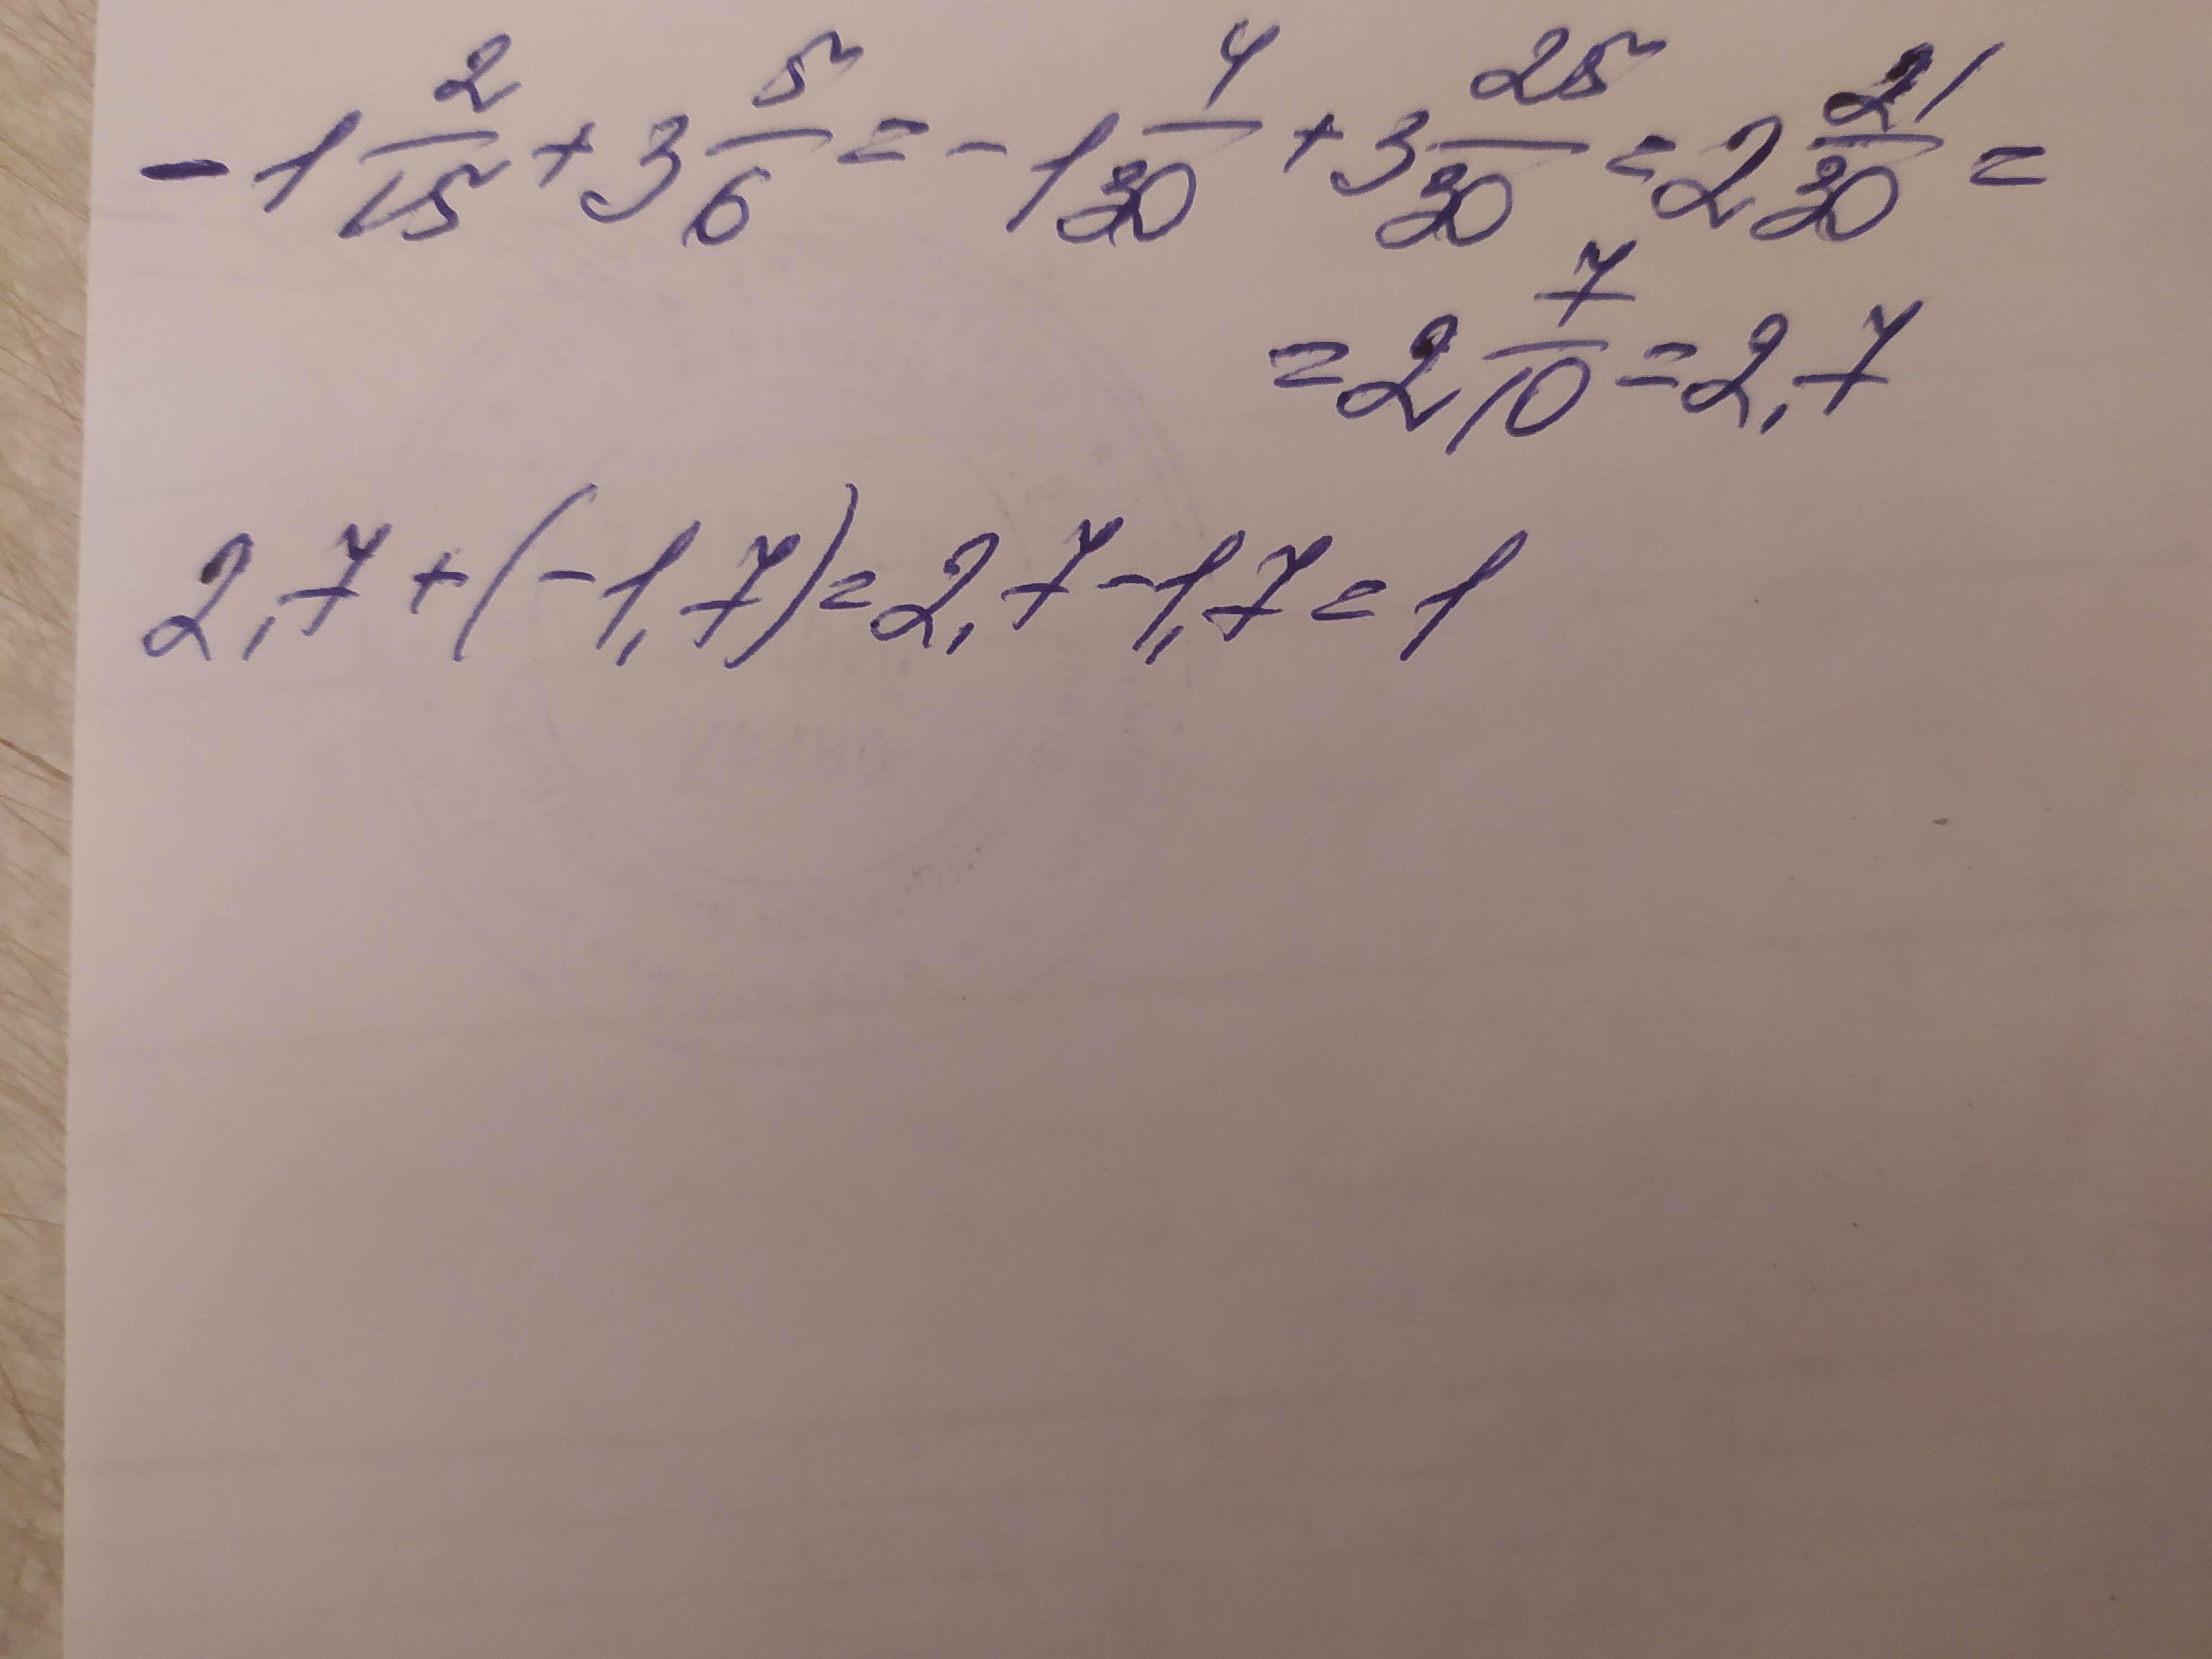 -1 2/15 + 3 5/6 = -1 4/30 + 3 25/30 = 2 21/30 =
= 2 7/10 = 2,7
2,7 + (-1,7) = 2,7 - 1,7 = 1